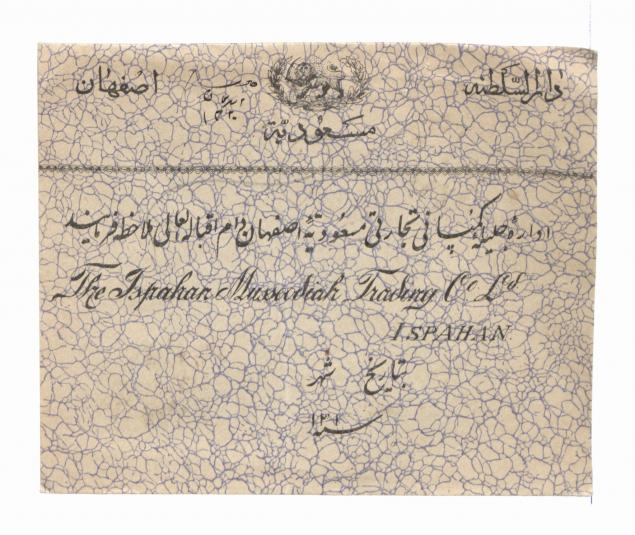 دارالسلطنه اصفهان
مسعودیّة
ادارهٔ جلیله کمپانی تجارتی مسعودیّهٔ اصفهان دام اقباله العالی ملاحظه فرمایند
The Ispahan Mussudiah Trading Co Ld
ISPAHAN.
بتاریخ شهر
سنه ۱۳۱